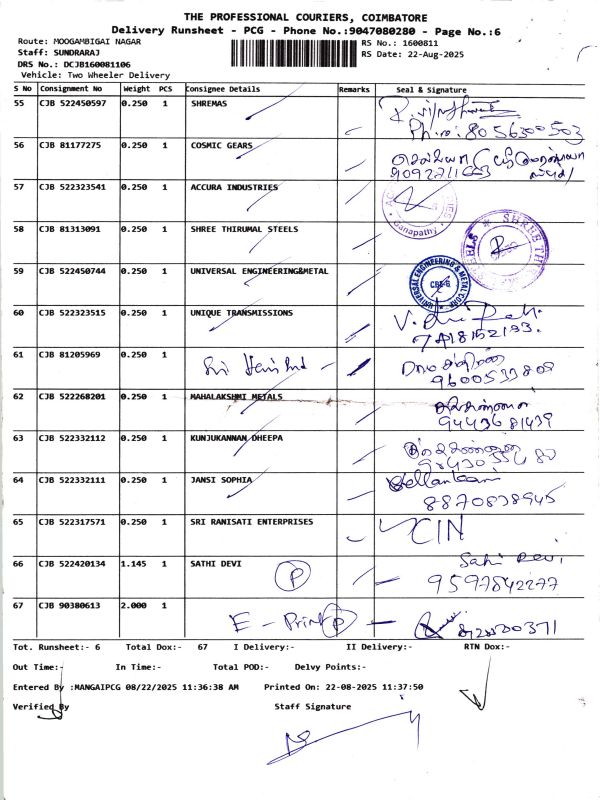 THE PROFESSIONAL COURIERS, COIMBATORE
Delivery Runsheet - PCG - Phone No.:9047080280 - Page No.:6
Route: MOOGAMBIGAI NAGAR
RS No.: 1600811
Staff: SUNDRARAJ
RS Date: 22-Aug-2025
DRS No.: DCJB160081106
Vehicle: Two Wheeler Delivery
S No Consignment No Weight PCS Consignee Details Remarks Seal & Signature
55 CJB 522450597 0.250 1 SHREMAS
Ph.no: 8056300503
56 CJB 81177275 0.250 1 COSMIC GEARS
57 CJB 522323541 0.250 1 ACCURA INDUSTRIES
Ganapathy
58 CJB 81313091 0.250 1 SHREE THIRUMAL STEELS
SHREE TH
EELS
59 CJB 522450744 0.250 1 UNIVERSAL ENGINEERING&METAL
UNIVERSAL ENGINEERING & METAL CORP
CBE-6
60 CJB 522323515 0.250 1 UNIQUE TRANSMISSIONS
7418152193.
61 CJB 81205969 0.250 1
9600533809
62 CJB 522268201 0.250 1 MAHALAKSHMI METALS
9443681439
63 CJB 522332112 0.250 1 KUNJUKANNAN DHEEPA
64 CJB 522332111 0.250 1 JANSI SOPHIA
8870838945
65 CJB 522317571 0.250 1 SRI RANISATI ENTERPRISES
CIN
66 CJB 522420134 1.145 1 SATHI DEVI P
Sathi Devi
9597842277
67 CJB 90380613 2.000 1 E - Print P
Tot. Runsheet:- 6 Total Dox:- 67 I Delivery:- II Delivery:- RTN Dox:-
Out Time:- In Time:- Total POD:- Delvy Points:-
Entered By :MANGAIPCG 08/22/2025 11:36:38 AM Printed On: 22-08-2025 11:37:50
Verified By Staff Signature